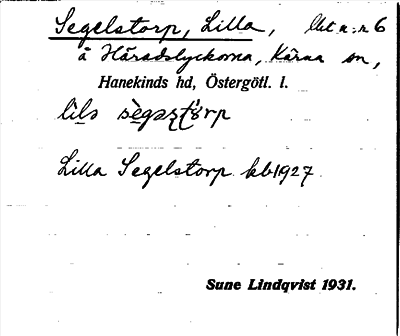 Segelstorp, Lilla, lht n:r 6
å Häradslyckorna, Kärna sn,
Hanekinds hd, Östergötl. l.
Lilla Segelstorp kb 1927
Sune Lindqvist 1931.